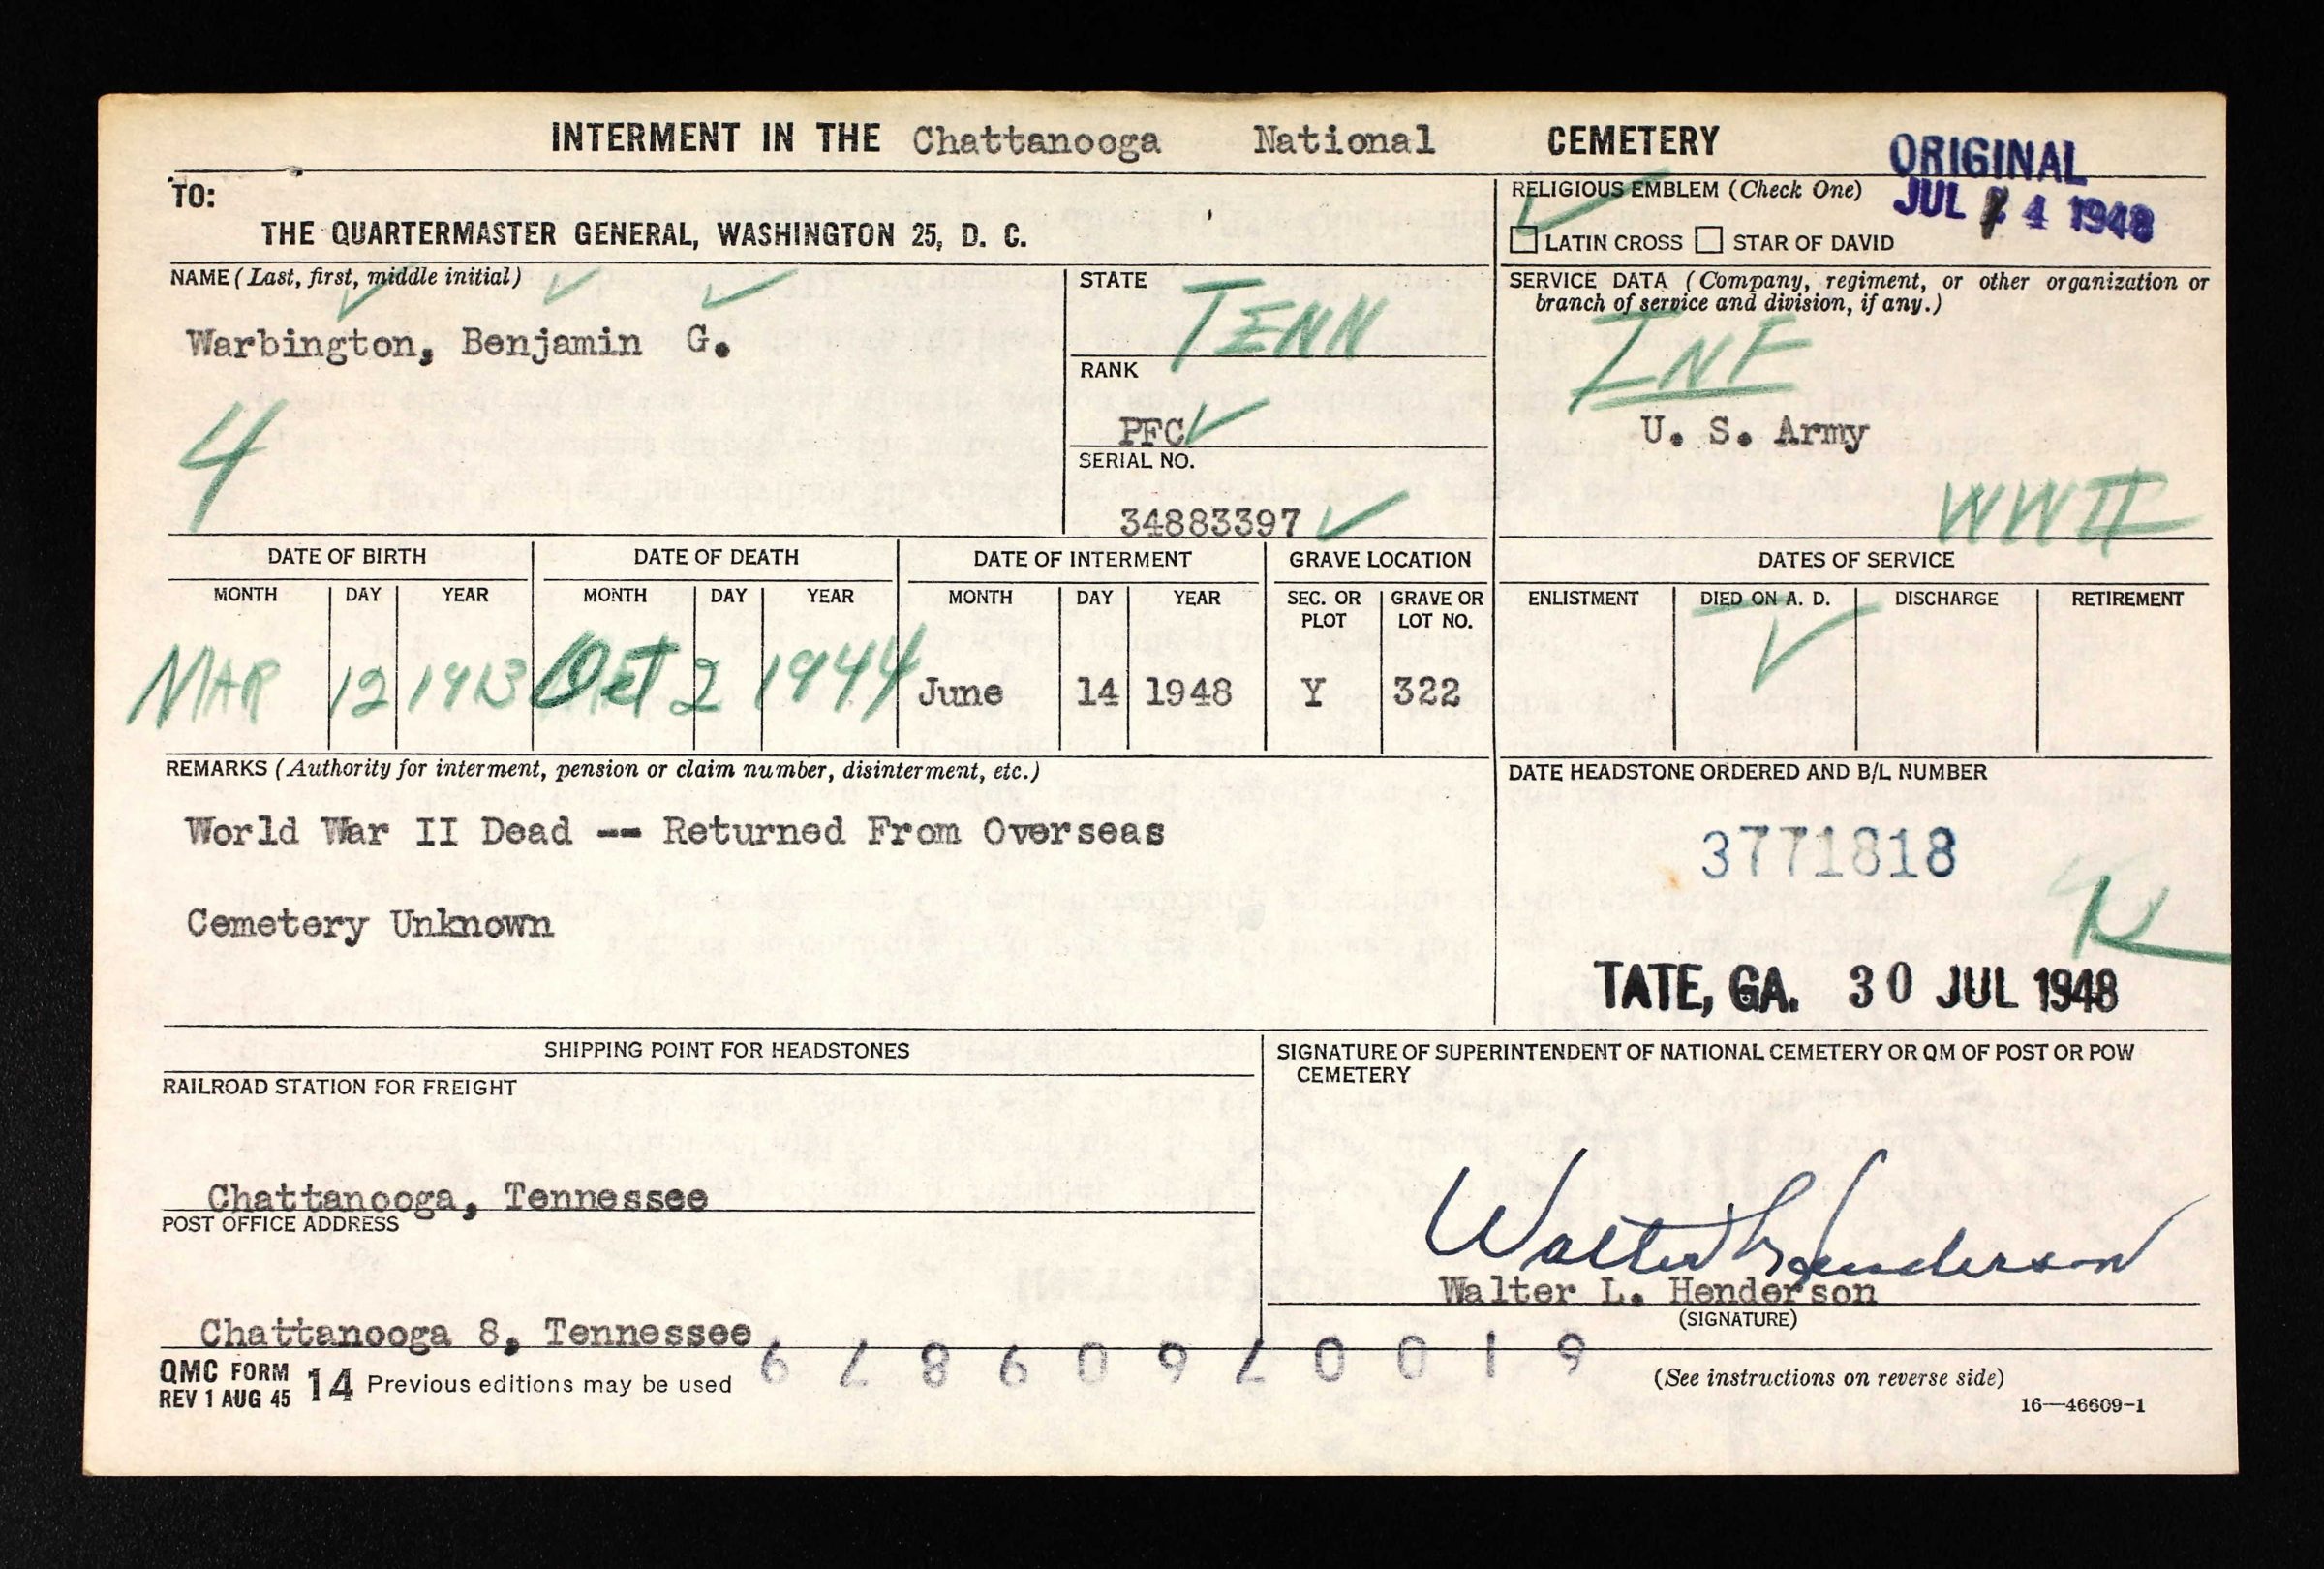 INTERMENT IN THE Chattanooga National CEMETERY
ORIGINAL
JUL 4 1948
TO:
THE QUARTERMASTER GENERAL, WASHINGTON 25, D. C.
RELIGIOUS EMBLEM (Check One)
LATIN CROSS STAR OF DAVID
NAME (Last, first, middle initial)
Warbington, Benjamin G.
4
STATE
TENN
RANK
PFC
SERIAL NO.
34883397
SERVICE DATA (Company, regiment, or other organization or
branch of service and division, if any.)
INF
U. S. Army
WWII
DATE OF BIRTH DATE OF DEATH DATE OF INTERMENT GRAVE LOCATION DATES OF SERVICE
MONTH DAY YEAR MONTH DAY YEAR MONTH DAY YEAR SEC. OR PLOT GRAVE OR LOT NO. ENLISTMENT DIED ON A. D. DISCHARGE RETIREMENT
MAR 12 1913 Oct 2 1944 June 14 1948 Y 322
REMARKS (Authority for interment, pension or claim number, disinterment, etc.)
World War II Dead -- Returned From Overseas
Cemetery Unknown
DATE HEADSTONE ORDERED AND B/L NUMBER
3771818
K
TATE, GA. 30 JUL 1948
SHIPPING POINT FOR HEADSTONES
RAILROAD STATION FOR FREIGHT
Chattanooga, Tennessee
POST OFFICE ADDRESS
Chattanooga 8, Tennessee
SIGNATURE OF SUPERINTENDENT OF NATIONAL CEMETERY OR QM OF POST OR POW
CEMETERY
Walter L. Henderson
Walter L. Henderson
(SIGNATURE)
QMC FORM 14 Previous editions may be used
REV 1 AUG 45
(See instructions on reverse side)
16—46609-1